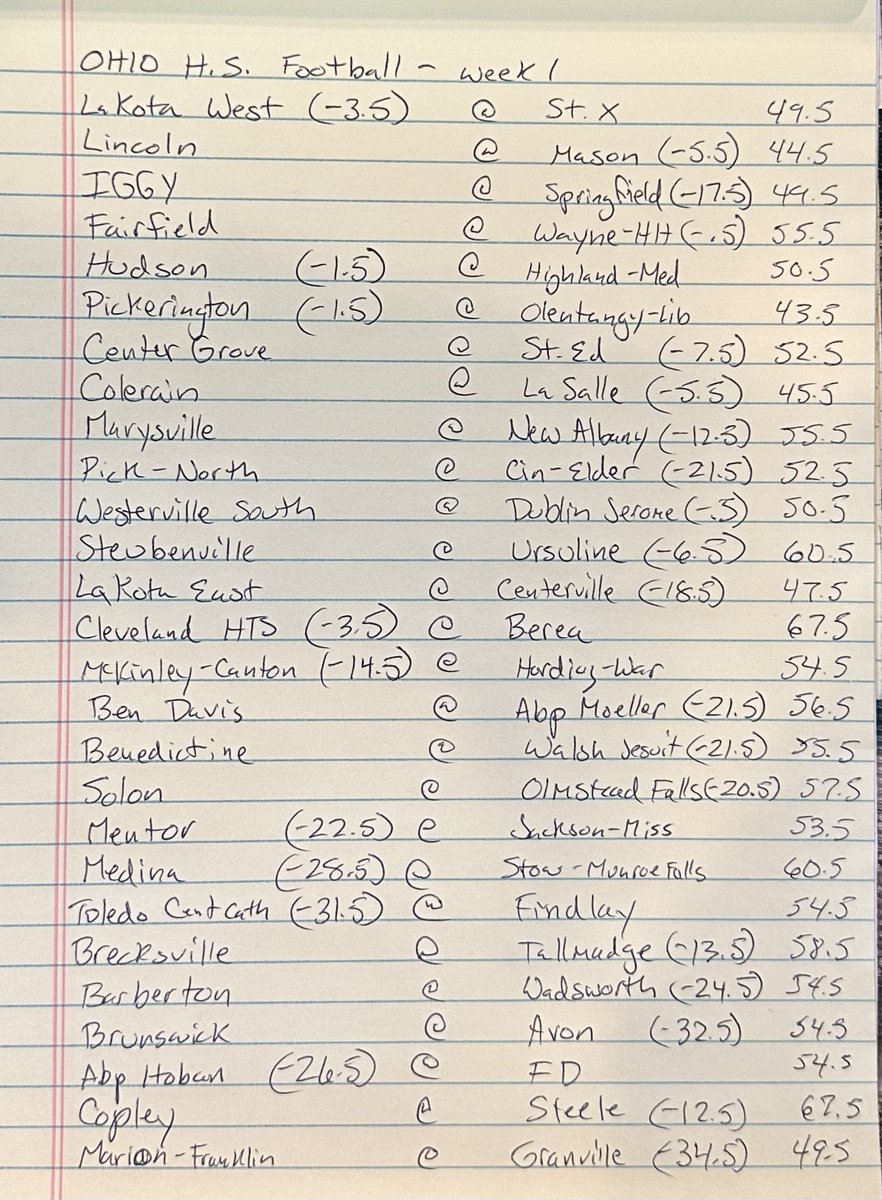 OHIO H.S. Football - Week 1
Lakota West (-3.5) @ St. X 49.5
Lincoln @ Mason (-5.5) 44.5
IGGY @ Springfield (-17.5) 49.5
Fairfield @ Wayne-HH (-.5) 55.5
Hudson (-1.5) @ Highland-Med 50.5
Pickerington (-1.5) @ Olentangy-Lib 43.5
Center Grove @ St. Ed (-7.5) 52.5
Colerain @ La Salle (-5.5) 45.5
Marysville @ New Albany (-12.5) 55.5
Pick-North @ Cin-Elder (-21.5) 52.5
Westerville South @ Dublin Jerome (-.5) 50.5
Steubenville @ Ursuline (-6.5) 60.5
Lakota East @ Centerville (-18.5) 47.5
Cleveland HTS (-3.5) @ Berea 67.5
McKinley-Canton (-14.5) @ Harding-War 54.5
Ben Davis @ Abp Moeller (-21.5) 56.5
Benedictine @ Walsh Jesuit (-21.5) 55.5
Solon @ Olmstead Falls (-20.5) 57.5
Mentor (-22.5) @ Jackson-Miss 53.5
Medina (-28.5) @ Stow-Munroe Falls 60.5
Toledo Cent Cath (-31.5) @ Findlay 54.5
Brecksville @ Tallmadge (-13.5) 58.5
Barberton @ Wadsworth (-24.5) 54.5
Brunswick @ Avon (-32.5) 54.5
Abp Hoban (-26.5) @ FD 54.5
Copley @ Steele (-12.5) 67.5
Marion-Franklin @ Granville (-34.5) 49.5